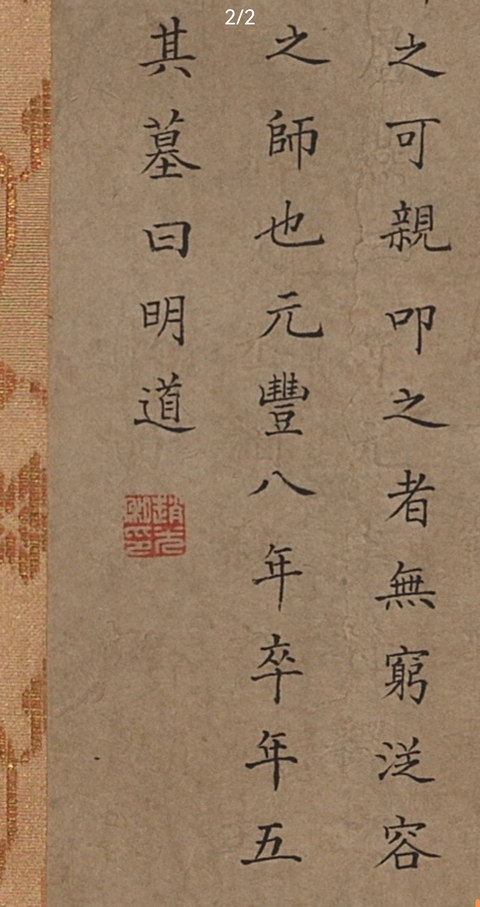 2/2
之可親叩之者無窮従容
之師也元豐八年卒年五
其墓曰明道